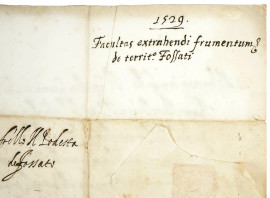 1529.
Facultas extrahendi frumentum
de territ.º Fossati
Podesta
de Fossato